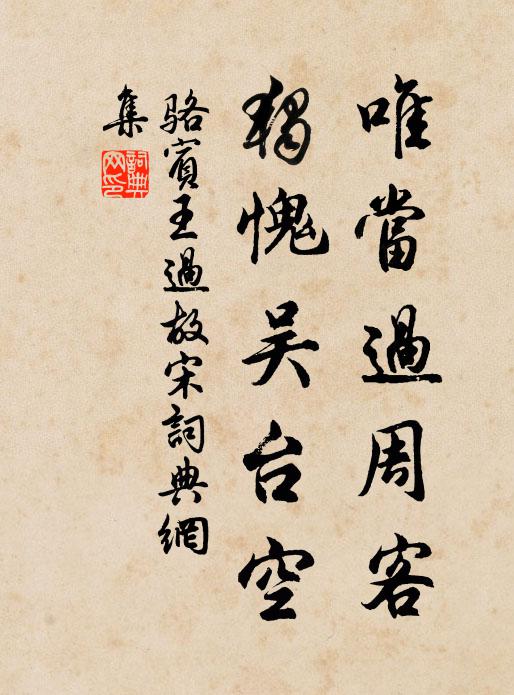 唯當過周客
獨愧吴台空
駱賓王過故宋詞典網
集
詞典網印